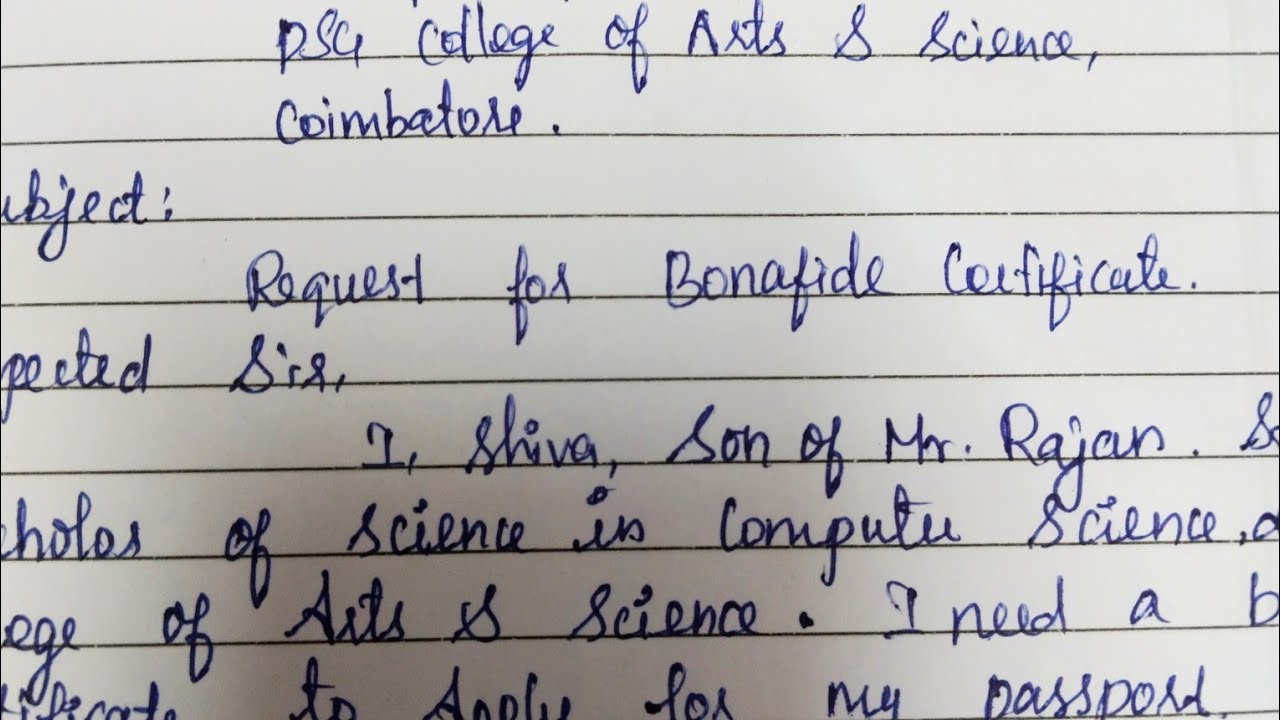 PSG College of Arts & Science,
Coimbatore.
ubject:
Request for Bonafide Certificate.
pected Sir,
I, Shiva, Son of Mr. Rajan. S
cholor of science in Computer Science,
ege of Arts & Science. I need a b
tificate to Apply for my passport.